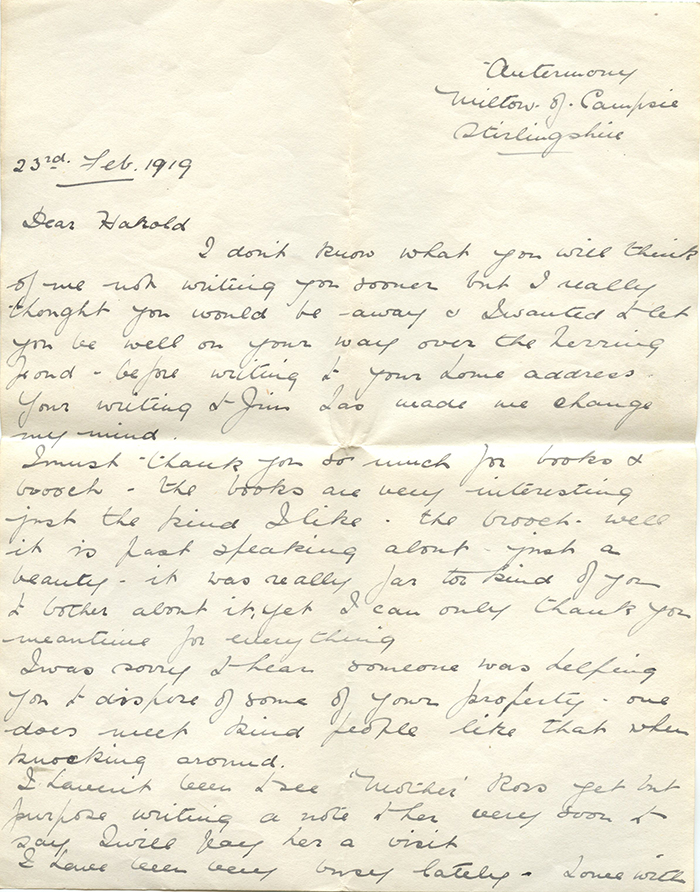 Antermony
Milton-of-Campsie
Stirlingshire
23rd. Feb. 1919
Dear Harold
I don't know what you will think
of me not writing you sooner but I really
thought you would be away & I wanted to let
you be well on your way over the herring
pond - before writing to your home address.
Your writing to Jim has made me change
my mind.
I must thank you so much for books &
brooch - the books are very interesting
just the kind I like - the brooch - well
it is past speaking about - just a
beauty - it was really far too kind of you
to bother about it, yet I can only thank you
meantime for everything
I was sorry to hear someone was helping
you to dispose of some of your property - one
does meet kind people like that when
knocking around.
I havent been to see 'Mother' Ross yet but
purpose writing a note to her very soon to
say I will pay her a visit
I have been very busy lately - home with